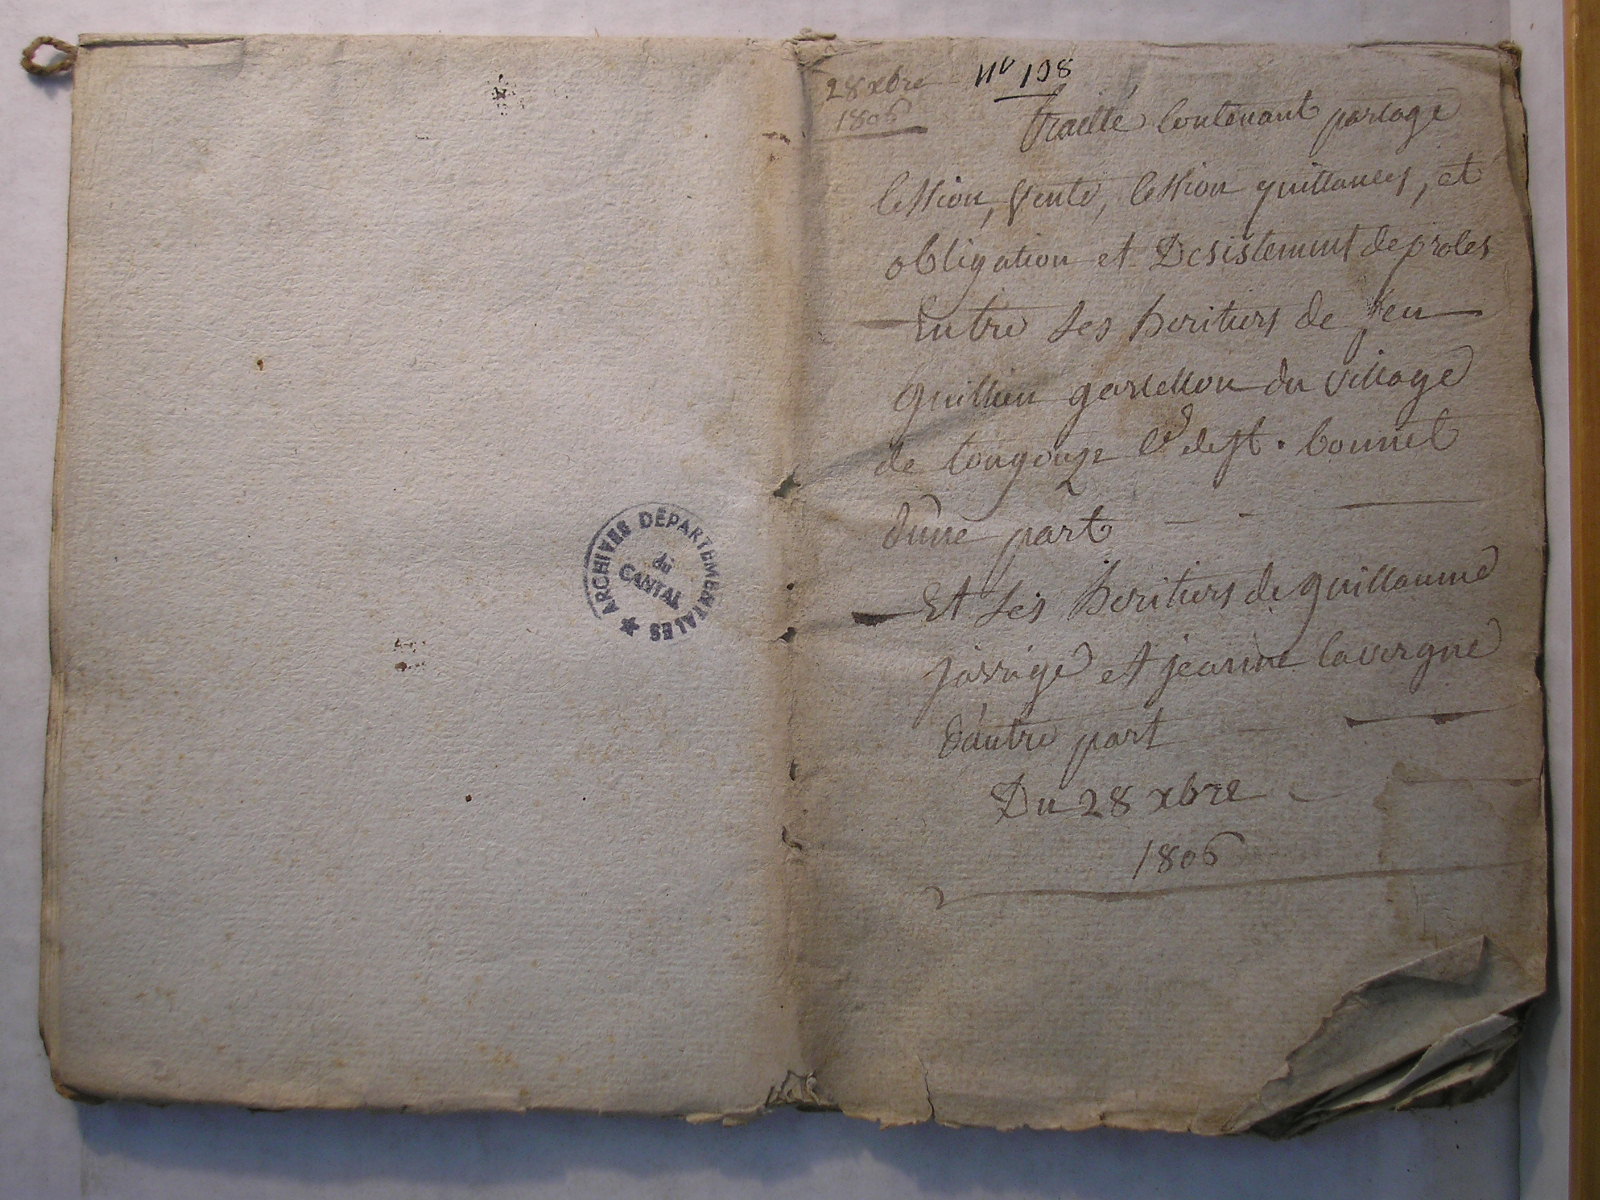 ARCHIVES DÉPARTEMENTALES
du
CANTAL
28 xbre
1806
Nº 108
traitté contenant partage
Cession, vente, Cession quittances, et
obligation et Desistement de proces
Entre Les heritiers de feu
de st. bonnet
d'une part
Et Les heritiers de guillaume
jarrige et jeanne lavergne
d'autre part
Du 28 xbre
1806